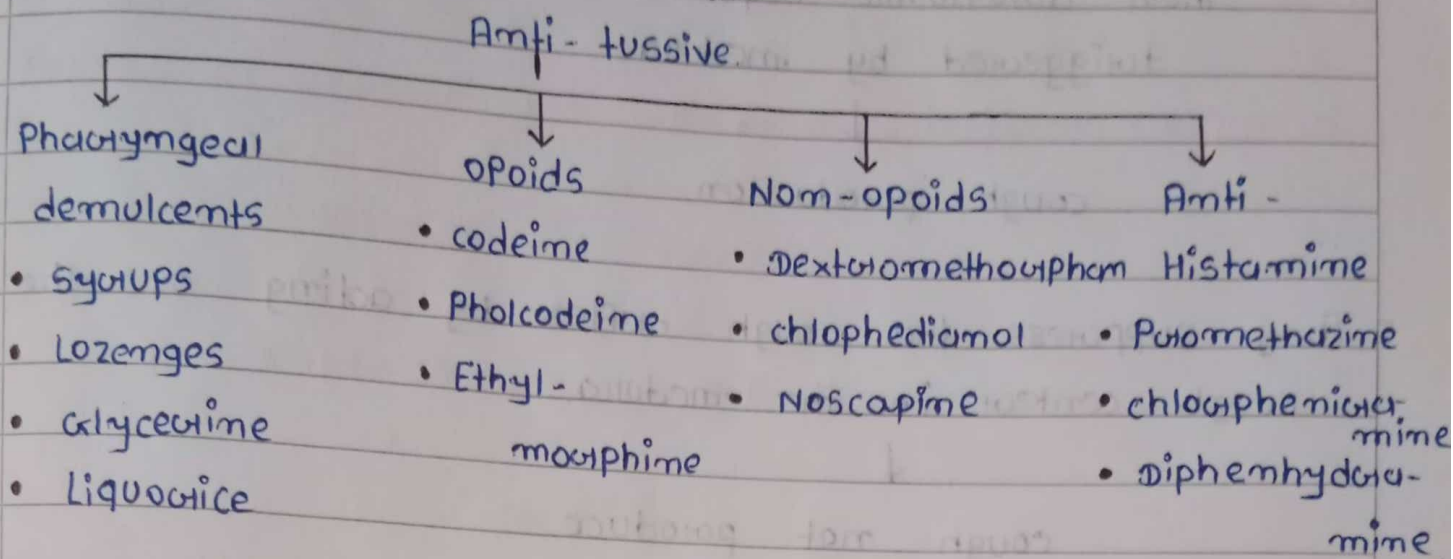 Anti - tussive
Pharyngeal
demulcents
• Syrups
• Lozenges
• Glycerine
• Liquorice
Opoids
• codeine
• Pholcodeine
• Ethyl-
morphine
Non-opoids
• Dextromethorphan
• chlophedianol
• Noscapine
Anti -
Histamine
• Promethazine
• chlorphenira
mine
• Diphenhydra-
mine